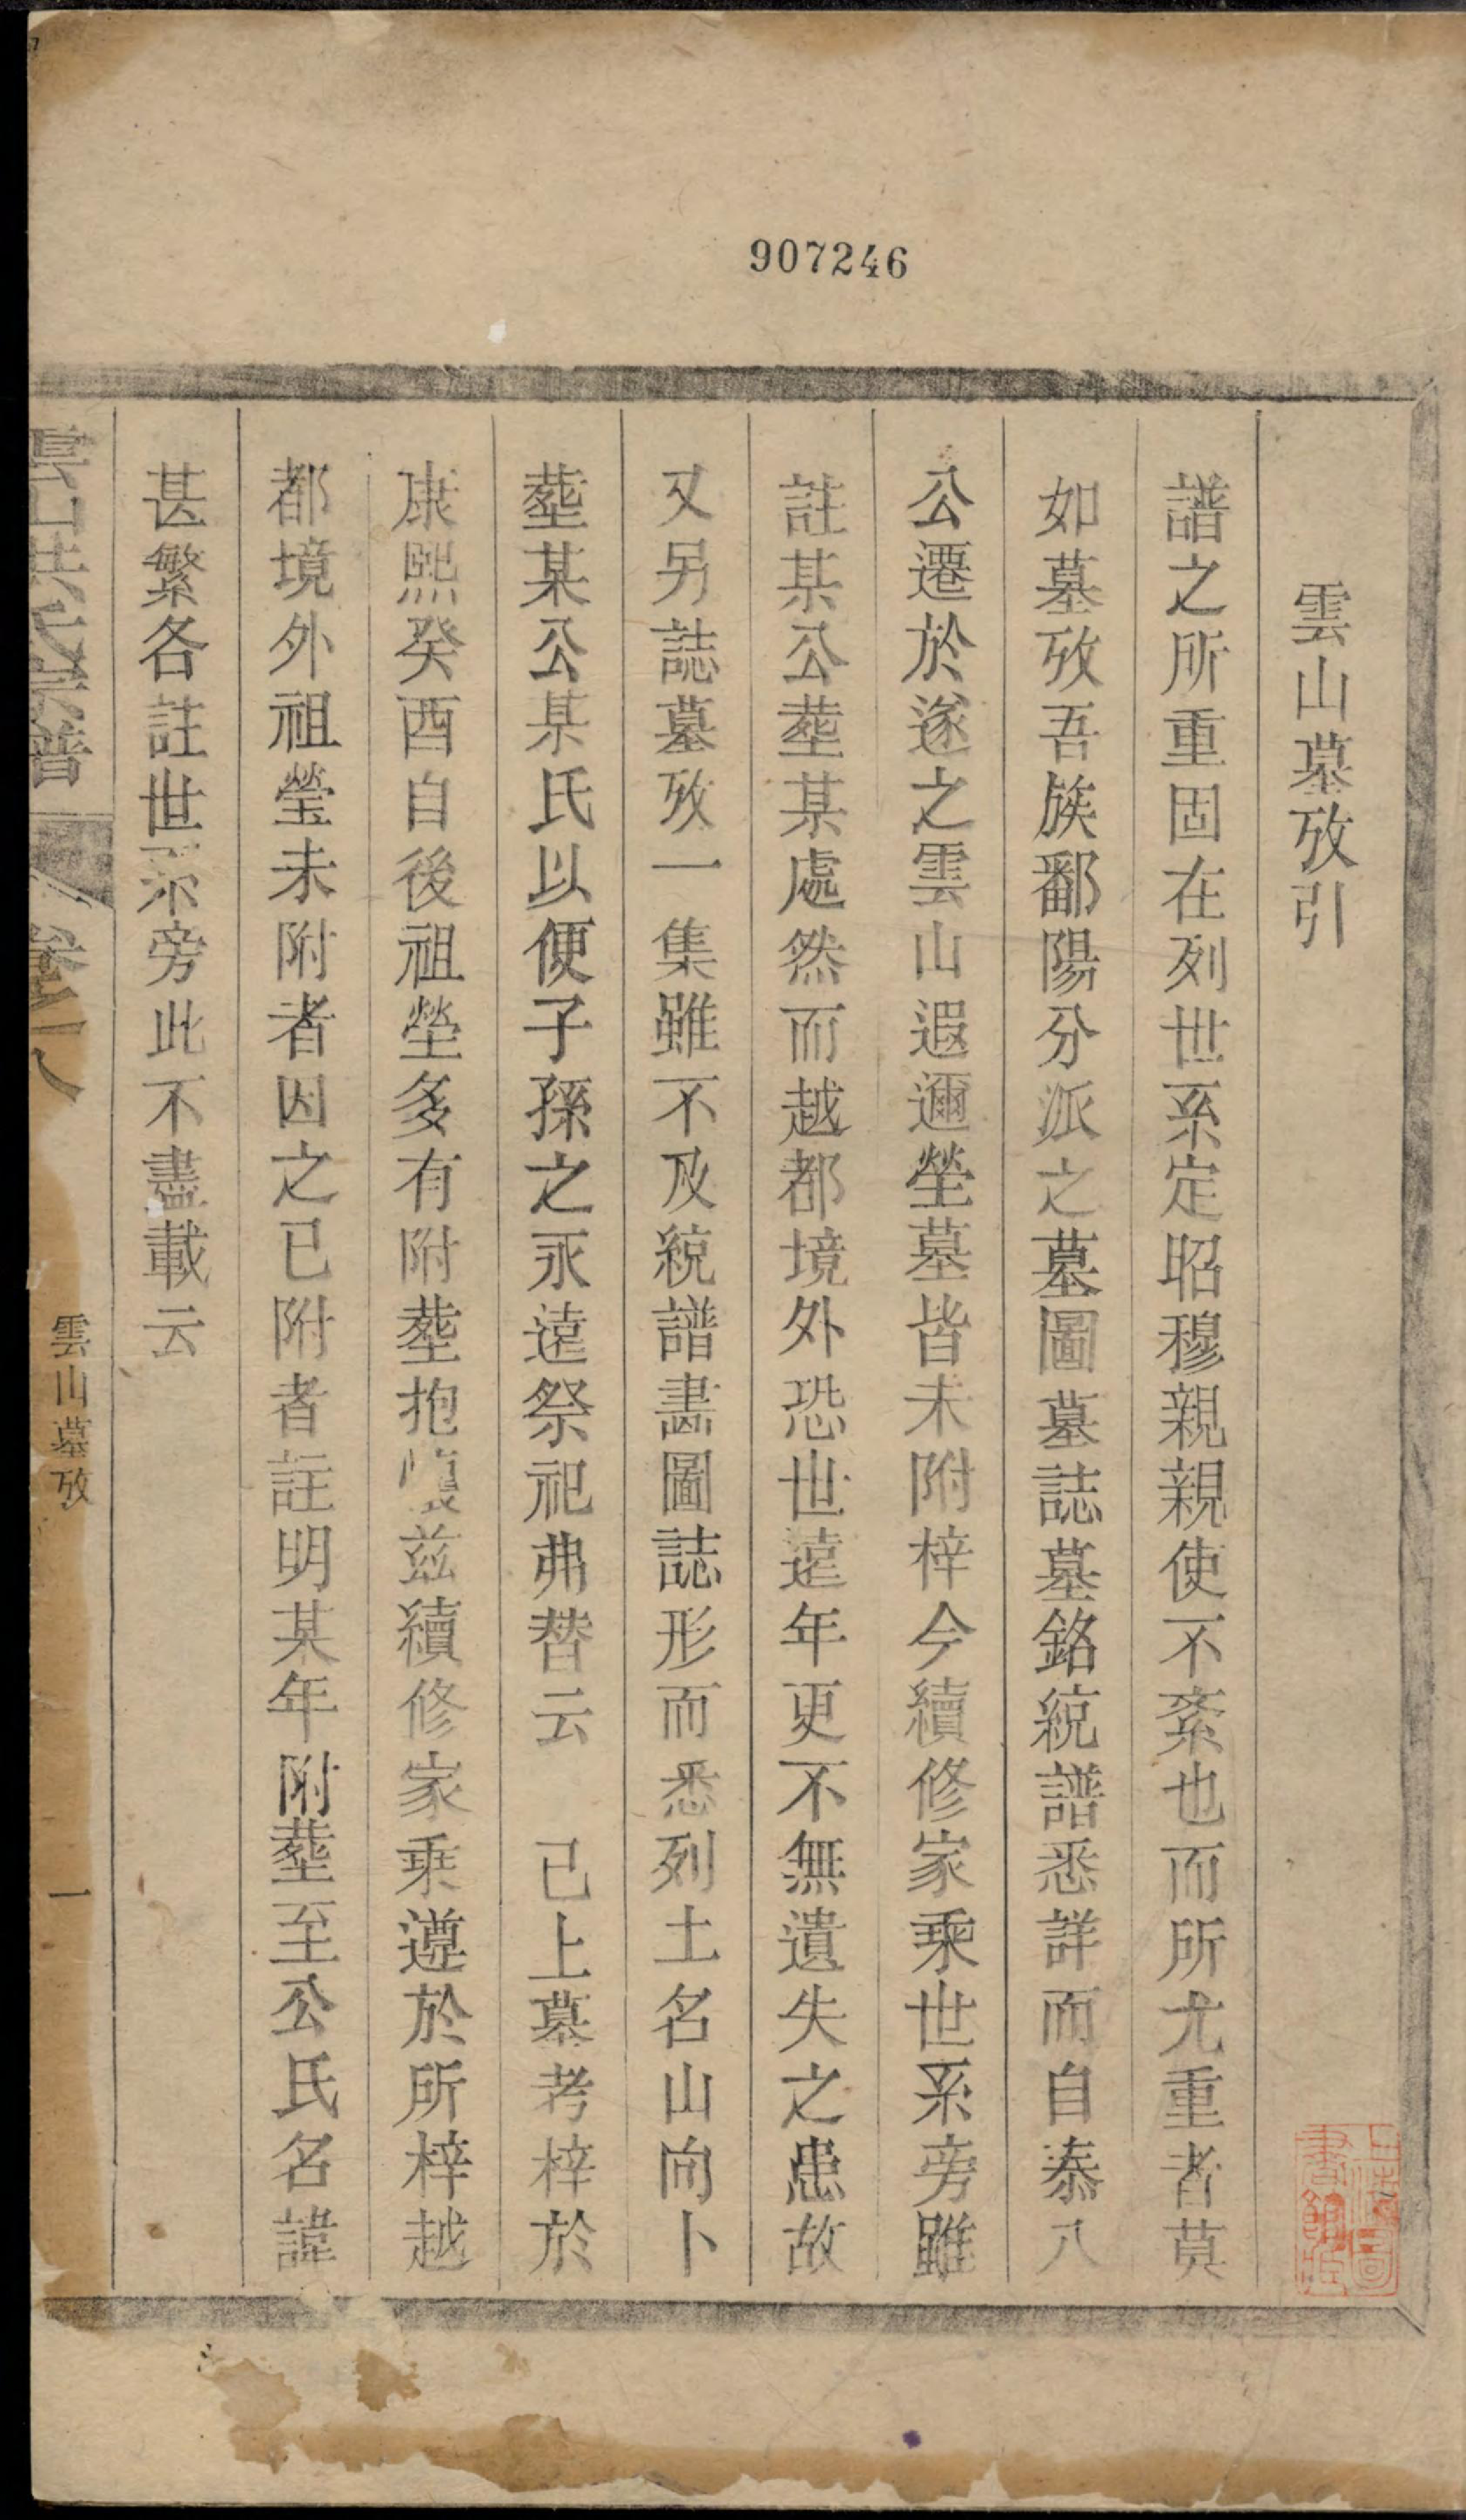 907246
雲山墓攷引
譜之所重固在列世系定昭穆親親使不紊也而所尤重者莫
如墓攷吾族鄱陽分派之墓圖墓誌墓銘統譜悉詳而自泰八
公遷於遂之雲山遐邇塋墓皆未附梓今續修家乘世系旁雖
註某公塟某處然而越都境外恐世遠年更不無遺失之患故
又另誌墓攷一集雖不及統譜畵圖誌形而悉列土名山向卜
塟某公某氏以便子孫之永遠祭祀弗替云　已上墓考梓於
康熙癸酉自後祖塋多有附塟抱愧兹續修家乗遵於所梓越
都境外祖瑩未附者因之已附者註明某年附塟至公氏名諱
甚繁各註世系旁此不盡載云
雲山洪氏宗譜
卷八
雲山墓攷
一
上海圖書館藏